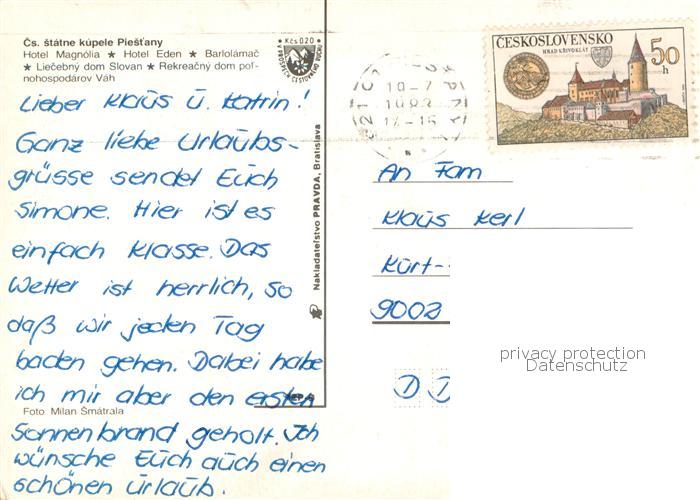 Čs. štátne kúpele Piešťany
Hotel Magnólia ★ Hotel Eden ★ Bartolámač
★ Liečebný dom Slovan ★ Rekreačný dom poľ-
nohospodárov Váh
Kčs 0,20
Lieber Klaus u. Katrin!
Ganz liebe Urlaubs-
grüsse sendet Euch
Simone. Hier ist es
einfach Klasse. Das
Wetter ist herrlich, so
daß wir jeden Tag
baden gehen. Dabei habe
ich mir aber den ersten
Foto Milan Šmátrala
Sonnenbrand geholt. Ich
wünsche Euch auch einen
schönen Urlaub.
Nakladateľstvo PRAVDA, Bratislava
ČESKOSLOVENSKO
HRAD KŘIVOKLÁT
50 h
An Fam
Klaus Kerl
Kurt-
9003
D D
privacy protection
Datenschutz